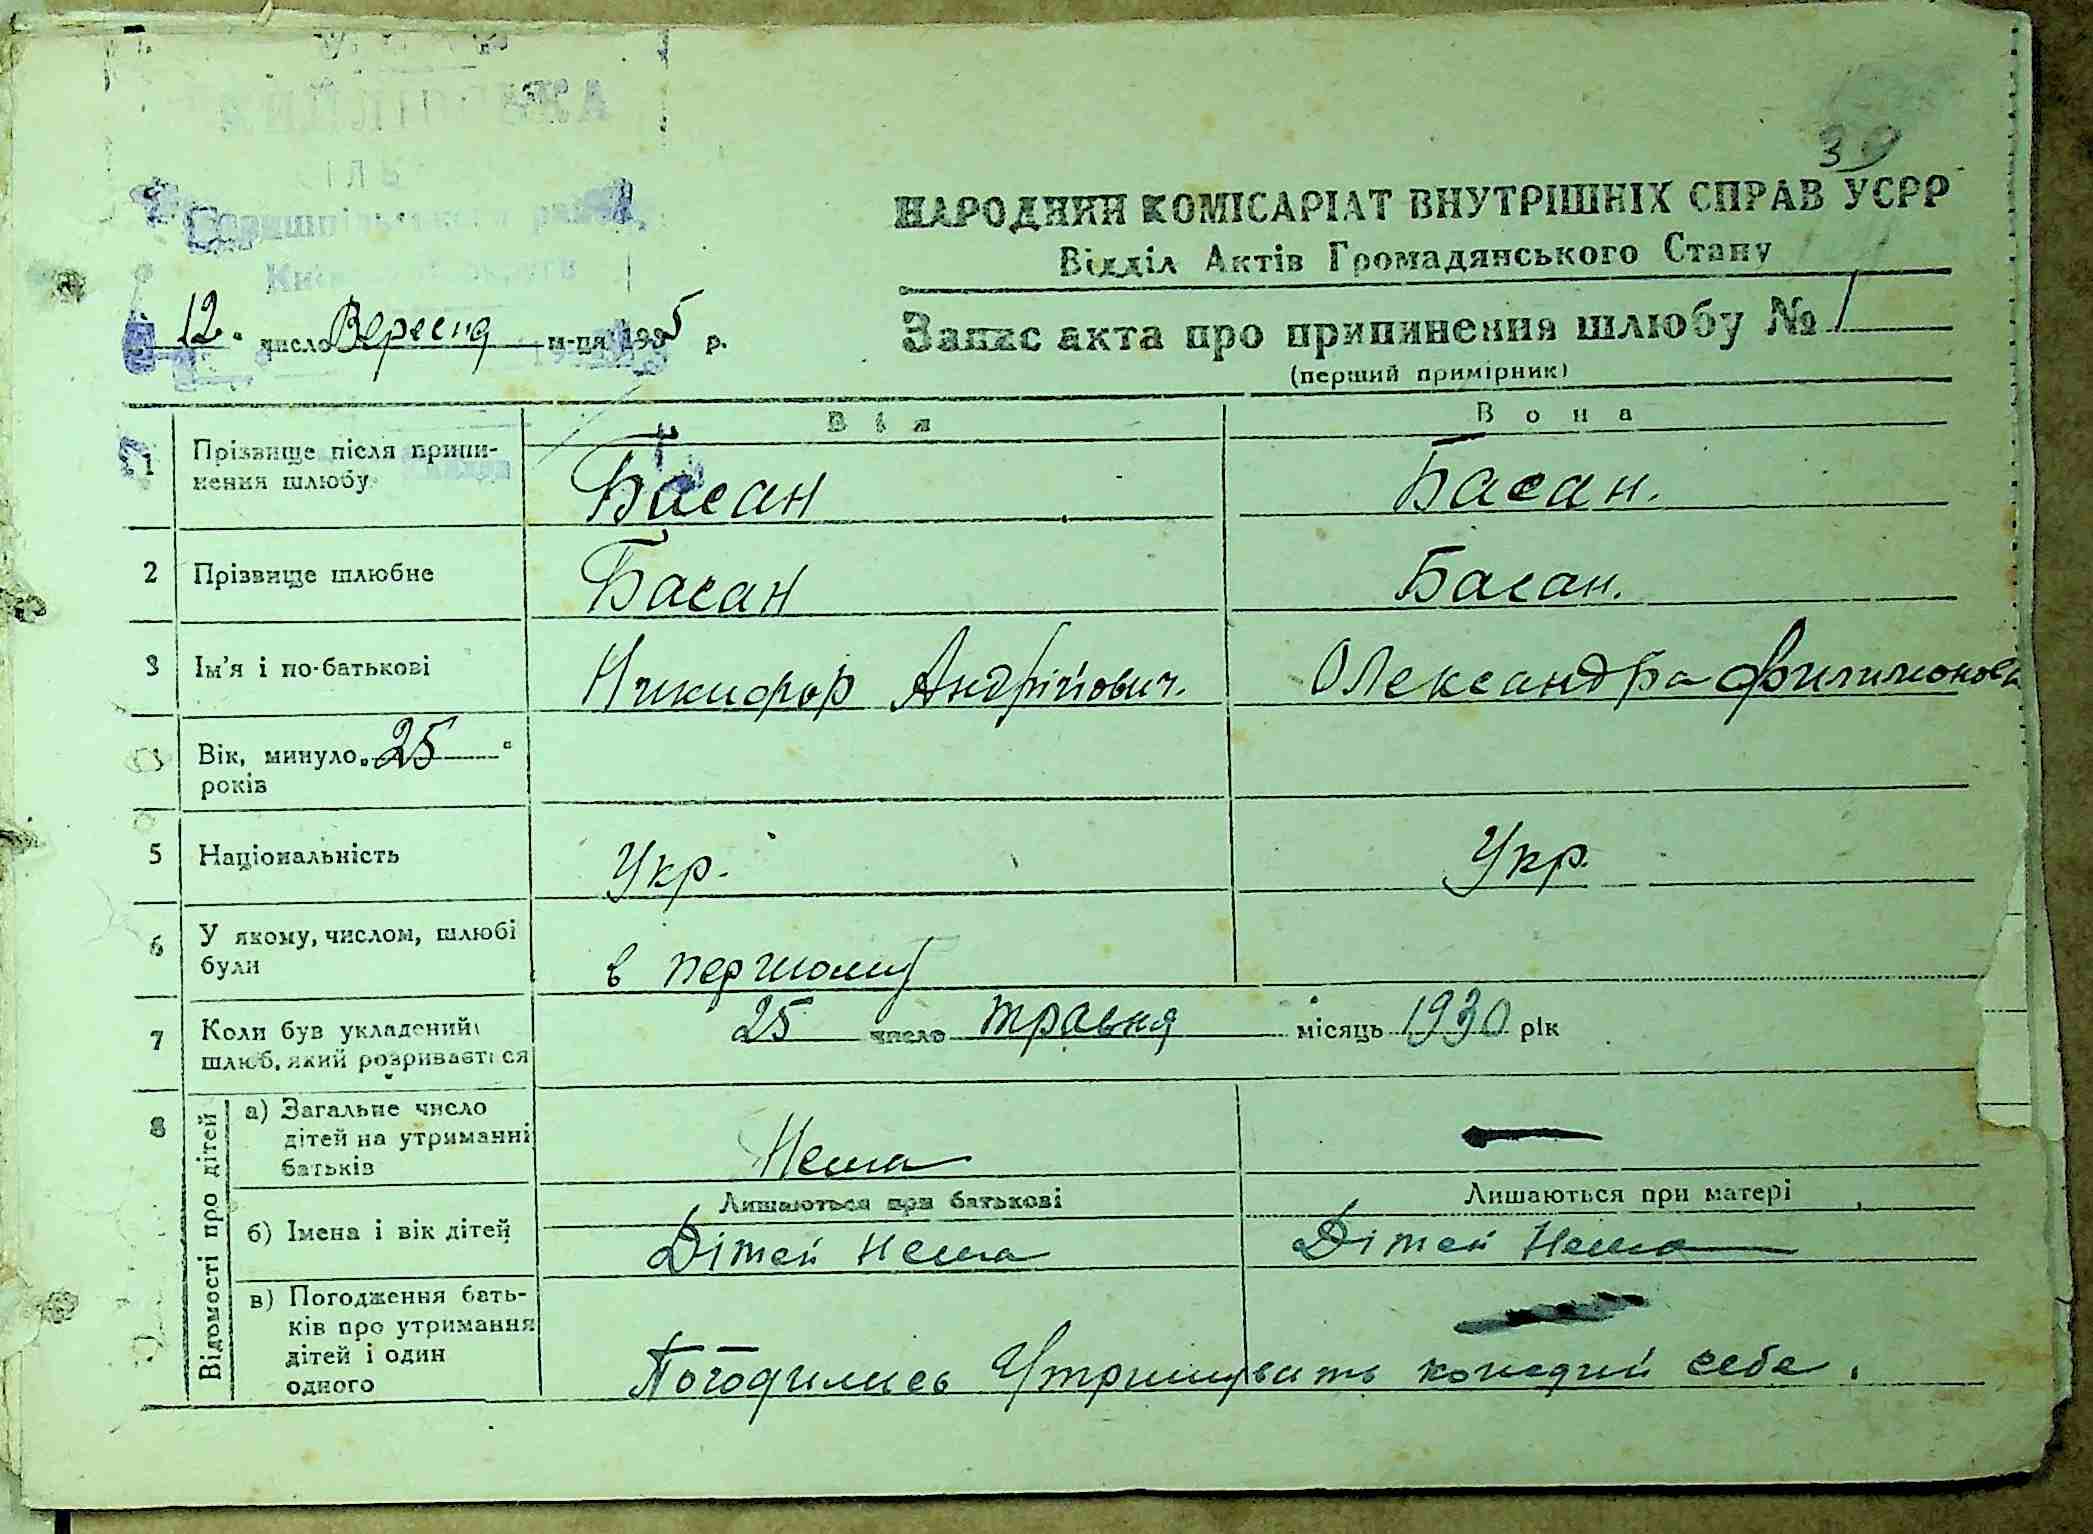 39
НАРОДНИЙ КОМІСАРІАТ ВНУТРІШНІХ СПРАВ УСРР
Відділ Актів Громадянського Стану
12 число Вересня м-ця 1935 р.
Запис акта про припинення шлюбу № 1
(перший примірник)
Він Вона
1 Прізвище після припи-
нення шлюбу Басан Басан.
2 Прізвище шлюбне Басан Басан.
3 Ім'я і по-батькові Никифор Андрійович. Олександра Филимонов
Вік, минуло 25
років
5 Національність Укр. Укр.
6 У якому, числом, шлюбі
були в першому
7 Коли був укладений
шлюб, який розривається 25 число травня місяць 1930 рік
8 Відомості про дітей
а) Загальне число
дітей на утриманні
батьків Нема
Лишаються при батькові Лишаються при матері
б) Імена і вік дітей Дітей нема Дітей нема
в) Погодження бать-
ків про утримання
дітей і один
одного Погодились Утримувать кождий себе.